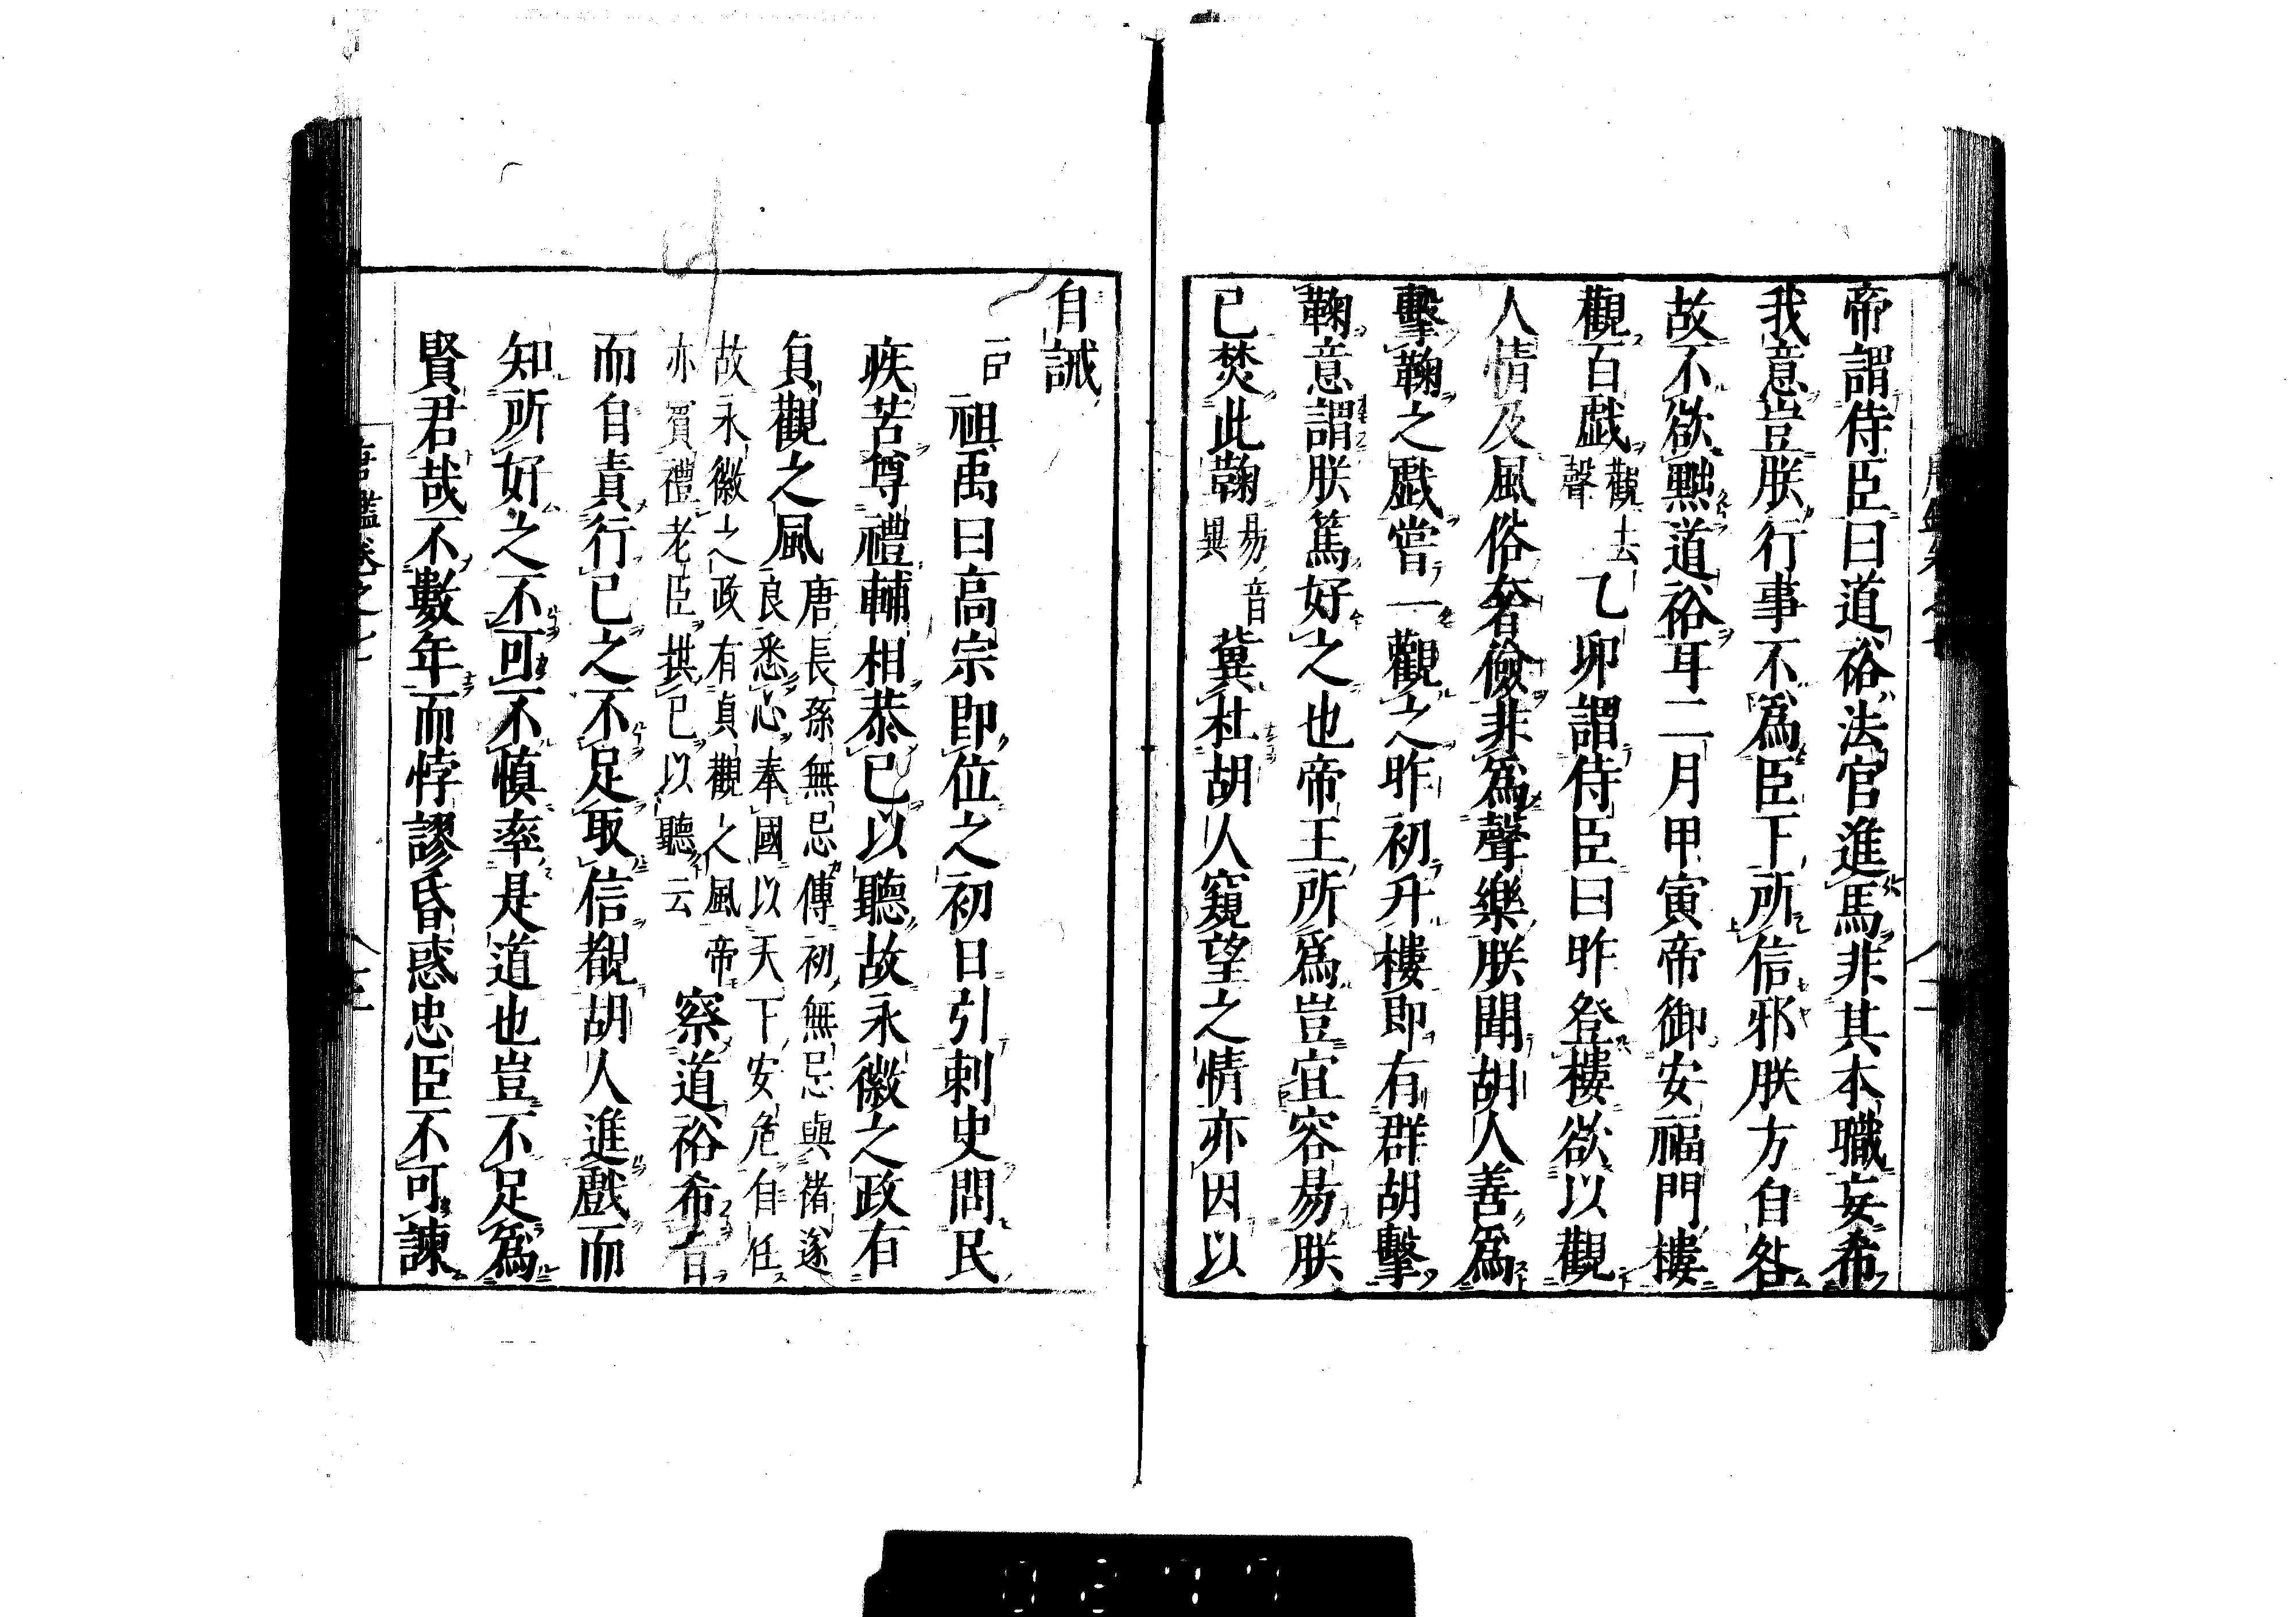 帝謂侍臣曰道裕法官進馬非其本職妄希
我意豈朕行事不爲臣下所信邪朕方自咎
故不欲黜道裕耳二月甲寅帝御安福門樓
觀百戲觀去聲乙卯謂侍臣曰昨登樓欲以觀
人情及風俗奢儉非爲聲樂朕聞胡人善爲
擊鞠之戲嘗一觀之昨初升樓即有群胡擊
鞠意謂朕篤好之也帝王所爲豈宜容易朕
已焚此鞠易音異冀杜胡人窺望之情亦因以
自誡
祖禹曰高宗即位之初日引刺史問民
疾苦尊禮輔相恭已以聽故永徽之政有
貞觀之風唐長孫無忌傳初無忌與褚遂
良悉心奉國以天下安危自任
故永徽之政有貞觀之風帝
亦賓禮老臣拱已以聽云察道裕希旨
而自責行已之不足取信覩胡人進戲而
知所好之不可不慎率是道也豈不足爲
賢君哉不數年而悖謬昏惑忠臣不可諫
唐鑑卷之七